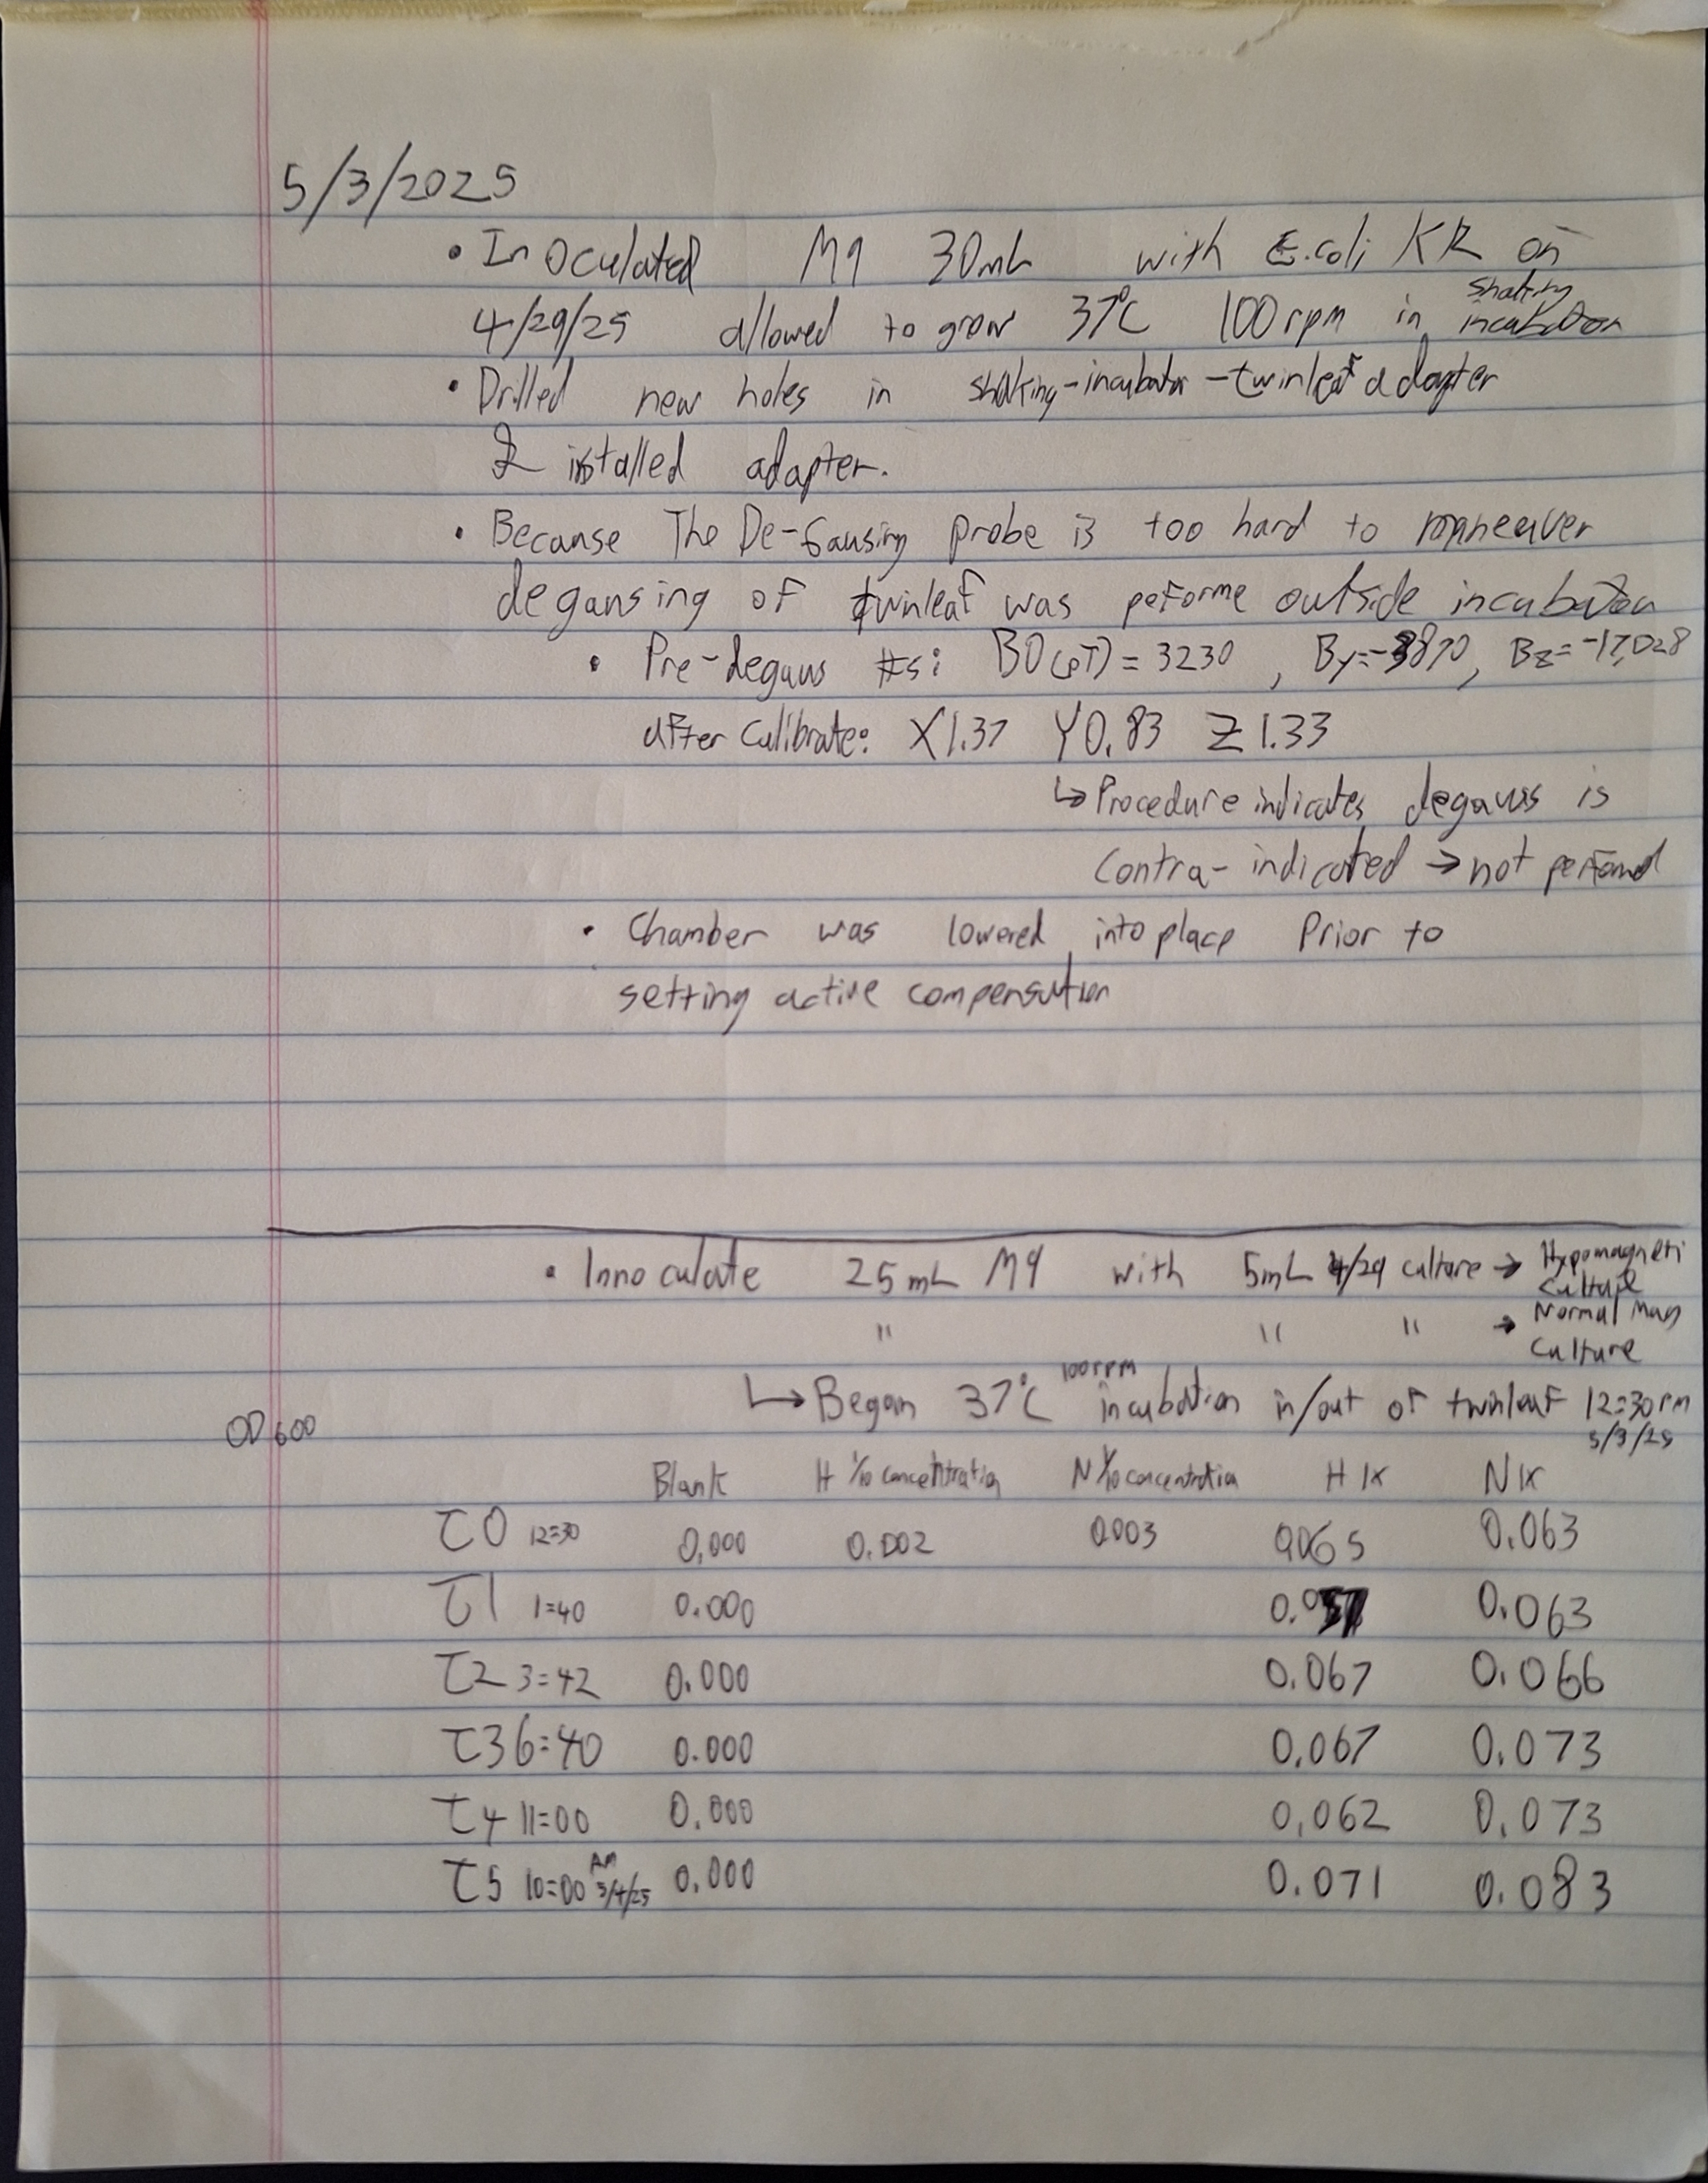 5/3/2025
• Inoculated M9 30mL with E.coli KR on
shaking
4/29/25 allowed to grow 37°C 100rpm in incubator
• Drilled new holes in shaking-incubator-twinleaf adapter
& installed adapter.
• Because The De-Gausing probe is too hard to maneaver
degausing of twinleaf was peforme outside incubator
• Pre-degaus #s: B0(pT) = 3230 , By=-3870, Bz=-17,028
after calibrate: X1.37 Y0.83 Z1.33
↳ Procedure indicates degauss is
Contra-indicated → not performd
• Chamber was lowered into place Prior to
setting active compensation
• Innoculate 25mL M9 with 5mL 4/29 culture → Hypomagneti
Culture
" " " → Normal mag
Culture
100rpm
↳ Began 37°C incubation in/out of twinleaf 12:30pm
5/3/25
OD600
Blank H 1/10 concentration N 1/10 concentration H 1x N 1x
T0 12:30 0.000 0.002 0.003 0.065 0.063
T1 1:40 0.000 0.063
T2 3:42 0.000 0.067 0.066
T3 6:40 0.000 0.067 0.073
T4 11:00 0.000 0.062 0.073
AM
T5 10:00 5/4/25 0.000 0.071 0.083